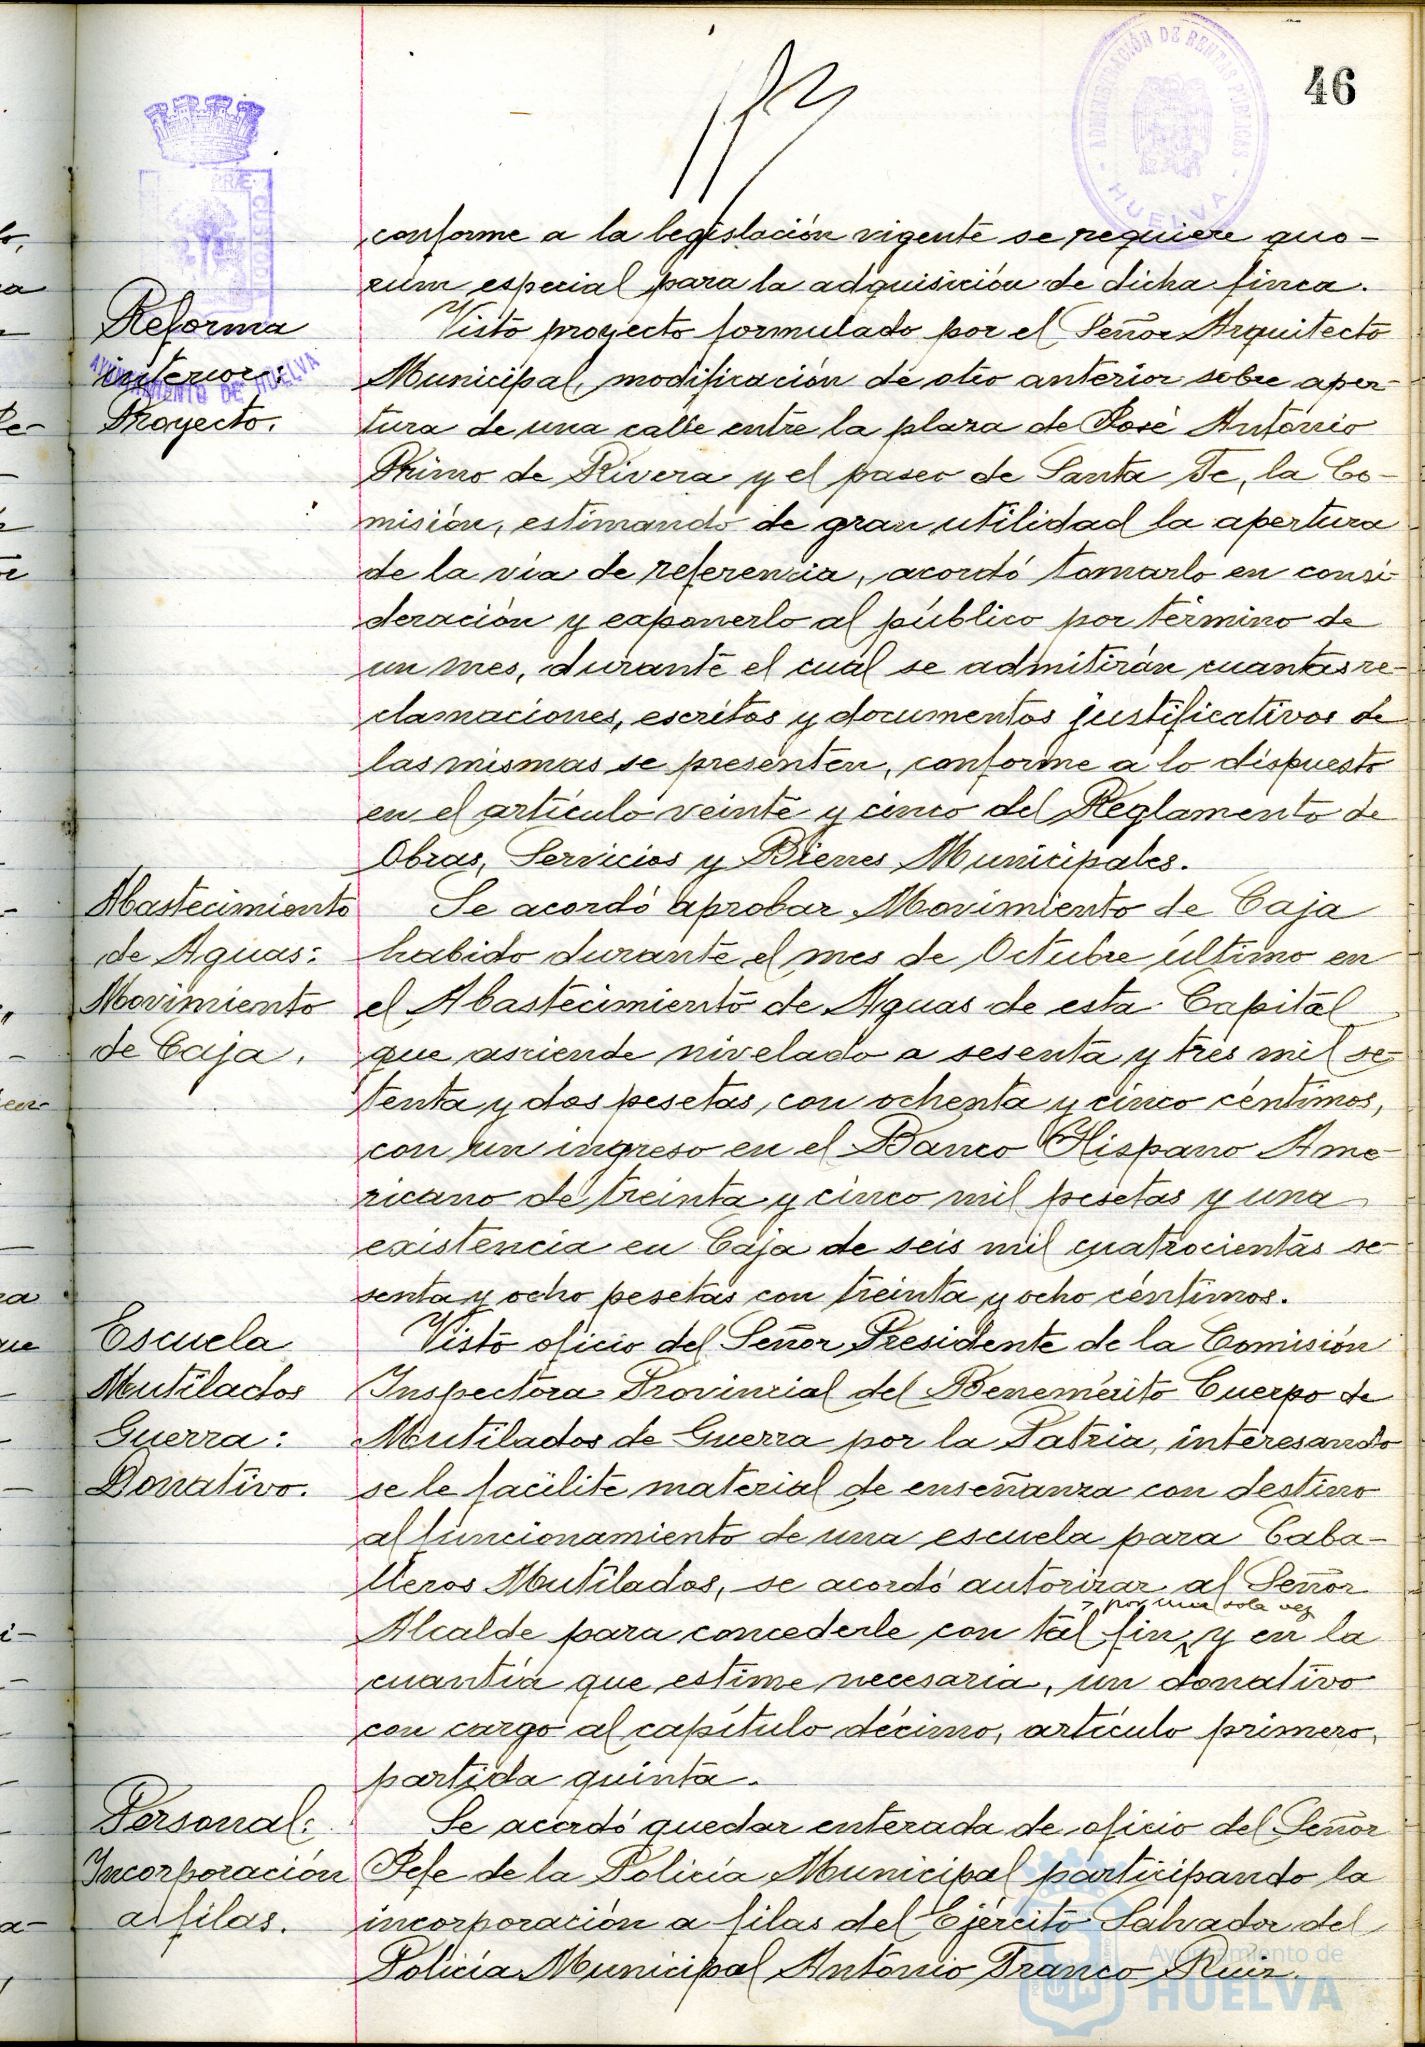 46
ADMINISTRACIÓN DE RENTAS PÚBLICAS
- HUELVA -
PRÆ
CUSTODI
AYUNTAMIENTO DE HUELVA
conforme a la legislación vigente se requiere quo-
rum especial para la adquisición de dicha finca.
Reforma
interior:
Proyecto.
Visto proyecto formulado por el Señor Arquitecto
Municipal, modificación de otro anterior sobre aper-
tura de una calle entre la plaza de José Antonio
Primo de Rivera y el paseo de Santa Fe, la Co-
misión, estimando de gran utilidad la apertura
de la vía de referencia, acordó tomarlo en consi-
deración y exponerlo al público por término de
un mes, durante el cual se admitirán cuantas re-
clamaciones, escritos y documentos justificativos de
las mismas se presenten, conforme a lo dispuesto
en el artículo veinte y cinco del Reglamento de
Obras, Servicios y Bienes Municipales.
Abastecimiento
de Aguas:
Movimiento
de Caja.
Se acordó aprobar Movimiento de Caja
habido durante el mes de Octubre último en
el Abastecimiento de Aguas de esta Capital
que asciende nivelado a sesenta y tres mil se-
tenta y dos pesetas, con ochenta y cinco céntimos,
con un ingreso en el Banco Hispano Ame-
ricano de treinta y cinco mil pesetas y una
existencia en Caja de seis mil cuatrocientas se-
senta y ocho pesetas con treinta y ocho céntimos.
Escuela
Mutilados
Guerra:
Donativo.
Visto oficio del Señor Presidente de la Comisión
Inspectora Provincial del Benemérito Cuerpo de
Mutilados de Guerra por la Patria, interesando
se le facilite material de enseñanza con destino
al funcionamiento de una escuela para Caba-
lleros Mutilados, se acordó autorizar al Señor
> por una sola vez
Alcalde para concederle con tal fin, y en la
cuantía que estime necesaria, un donativo
con cargo al capítulo décimo, artículo primero,
partida quinta.
Personal:
Incorporación
a filas.
Se acordó quedar enterada de oficio del Señor
Jefe de la Policía Municipal participando la
incorporación a filas del Ejército Salvador del
Policía Municipal Antonio Franco Ruiz.
Ayuntamiento de
HUELVA